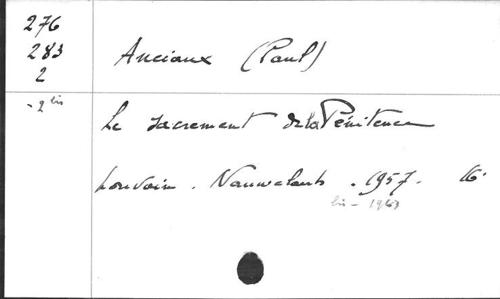 276
283
2
- 2 bis
Anciaux (Paul)
Le sacrement de la Pénitence
Louvain. Nauwelaerts. 1957. 16°
bis - 1963